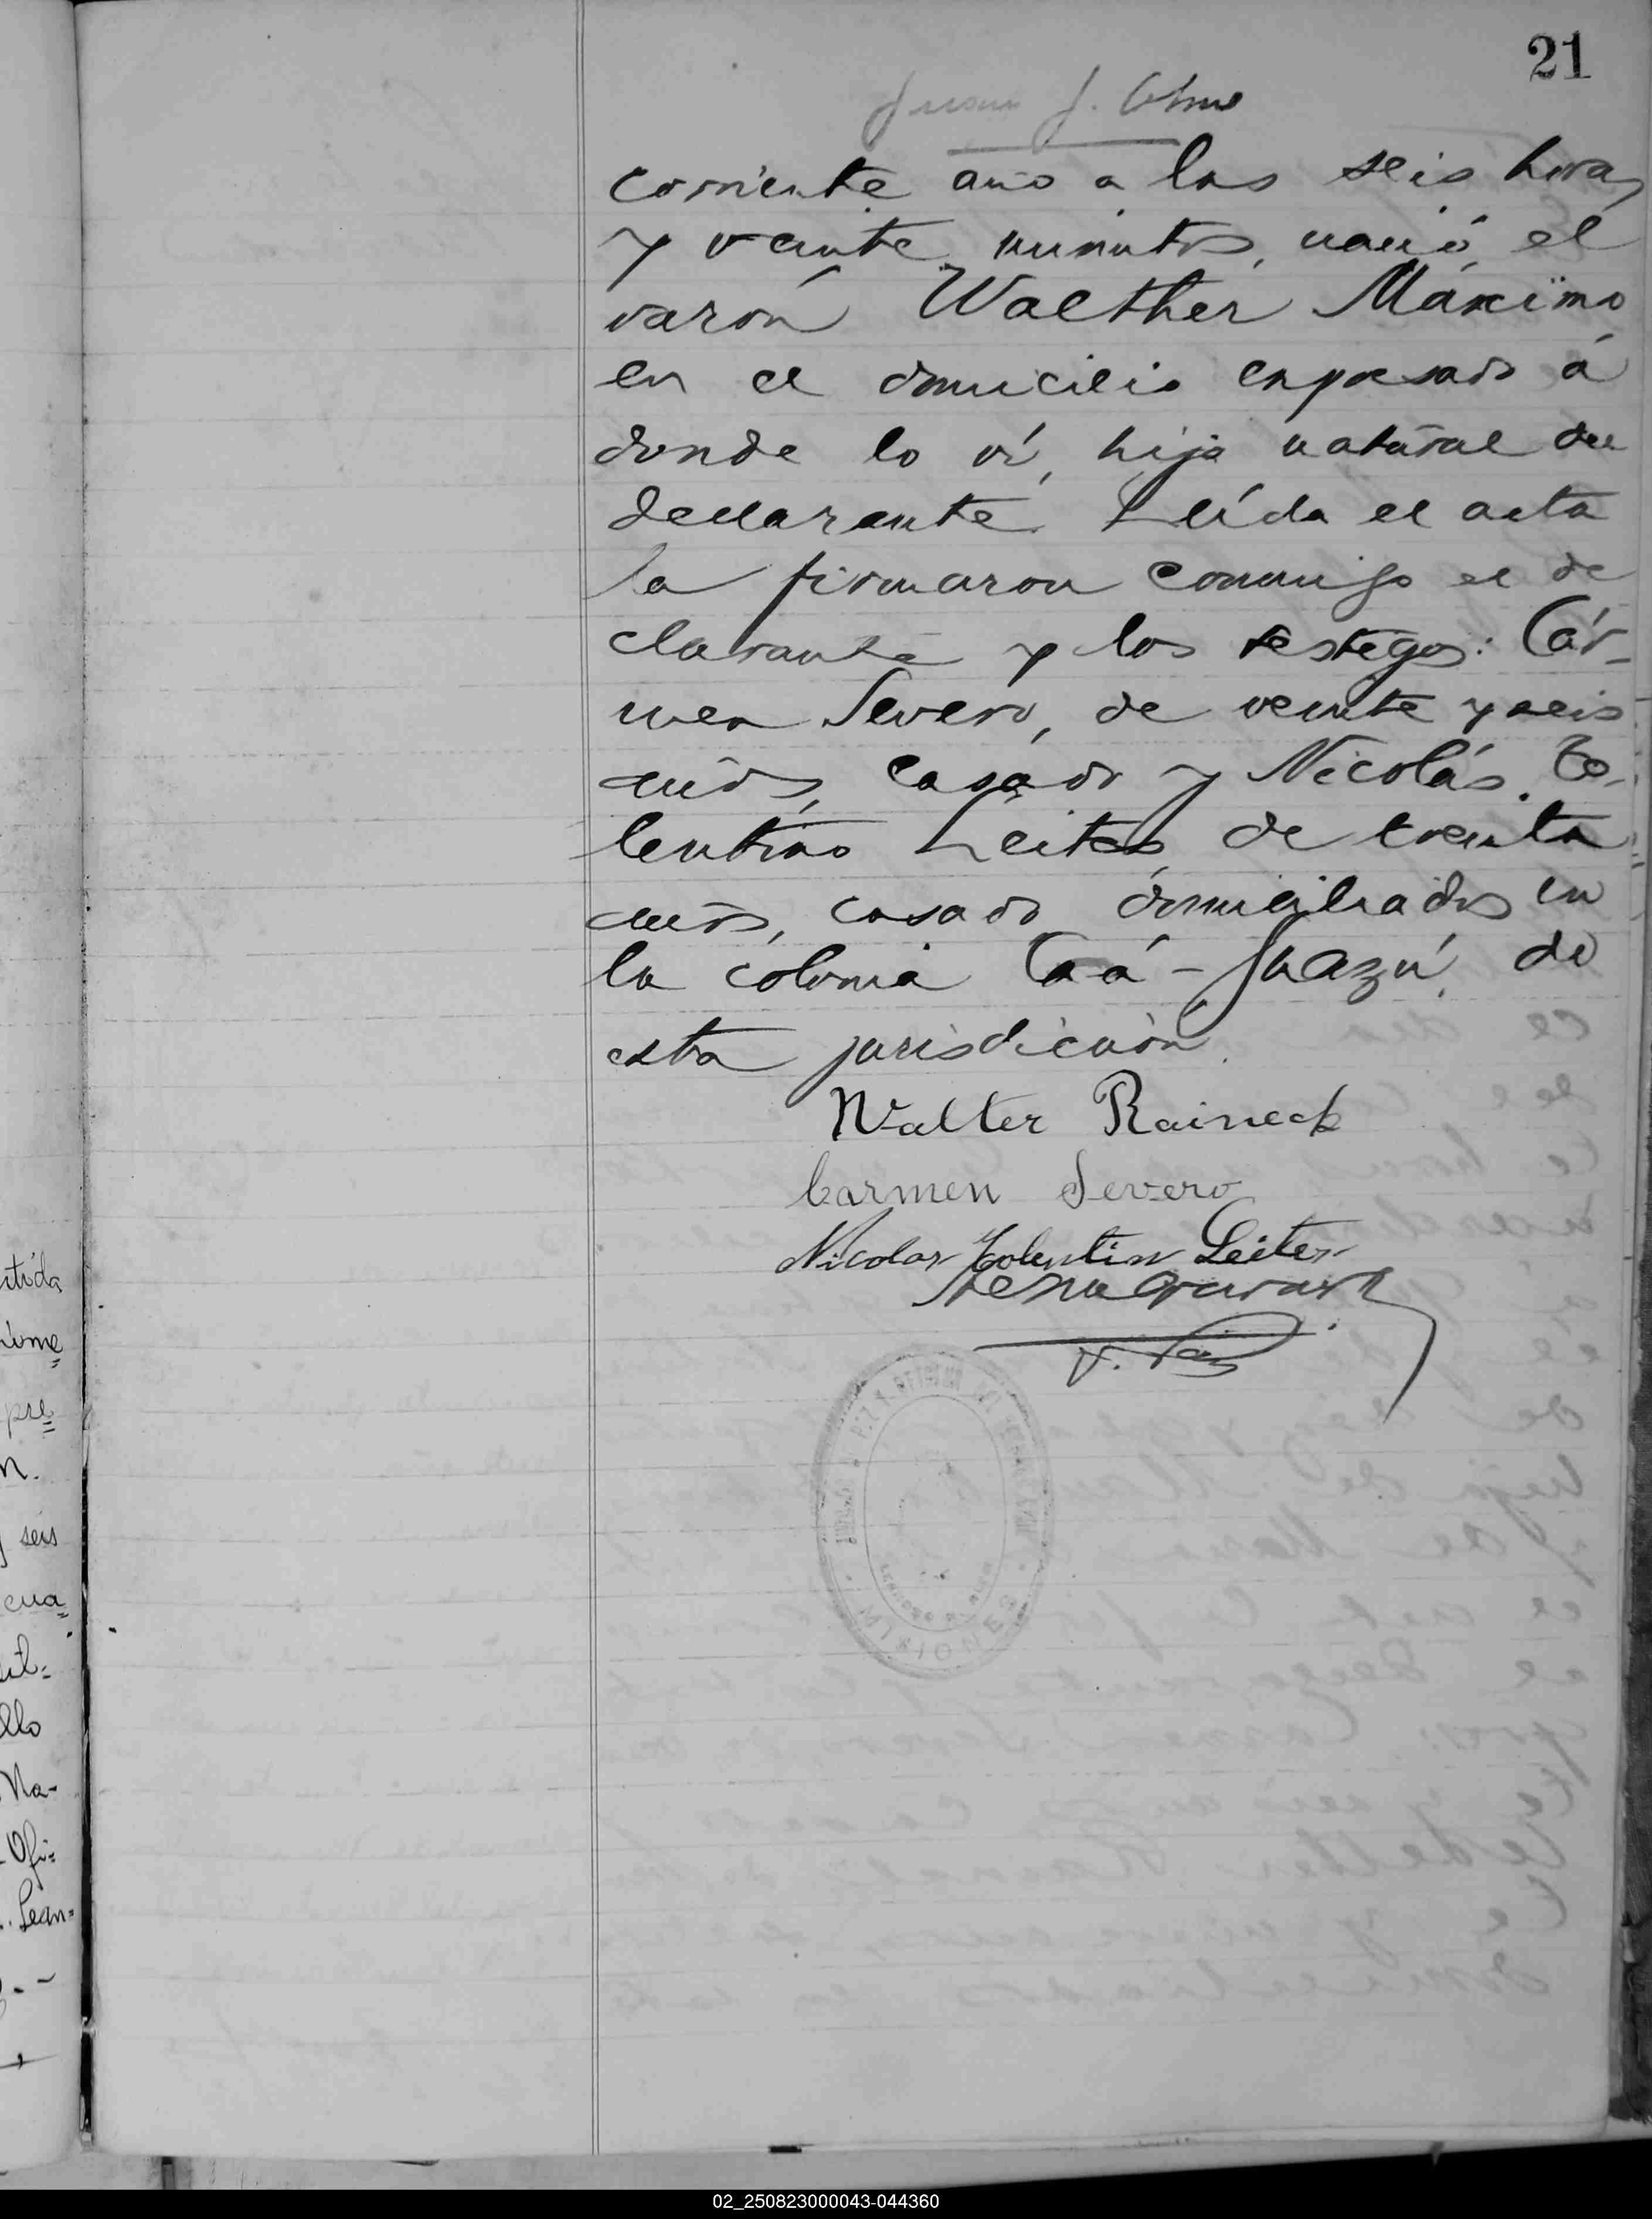 21
Juan J.
corriente año a las seis horas
y veinte minutos, nació, el
varón Walther Máximo
en el domicilio expresado á
donde lo ví, hijo natural del
declarante. Leída el acta
la firmaron conmigo el de
clarante y los testigos: Cár-
men Severo, de veinte y seis
años, casado y Nicolás To-
lentino Leites, de treinta
años, casado, domiciliados en
la colonia Caá-Guazú, de
esta jurisdicción.
Walter Raineck
Carmen Severo
Nicolas Tolentin Leites
MISIONES
tida
pre=
n.
seis
cua=
llo
Ma-
Ofi=
. Lean=
02_250823000043-044360